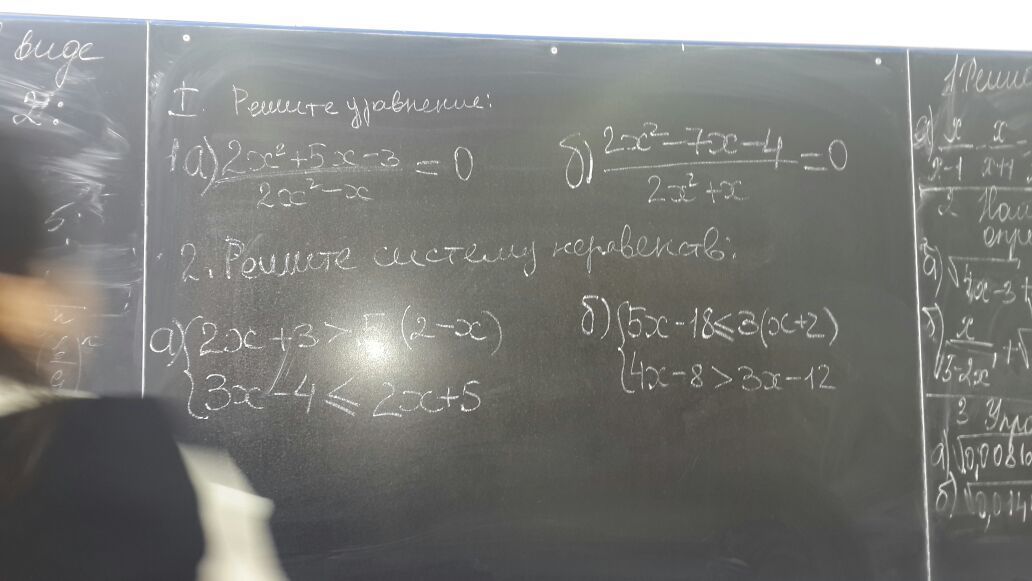 виде
2:
5:
I. Решите уравнение:
1а) (2x²+5x-3)/(2x²-x) = 0
б) (2x²-7x-4)/(2x²+x) = 0
2. Решите систему неравенств:
а) { 2x+3 > 5(2-x)
3x-4 ⩽ 2x+5
б) { 5x-18 ⩽ 3(x+2)
4x-8 > 3x-12
а) x/(x-1) x/(x+1
2
б) x/√(5-2x) + √
3 Упр
а) √0,0081
б) √0,014